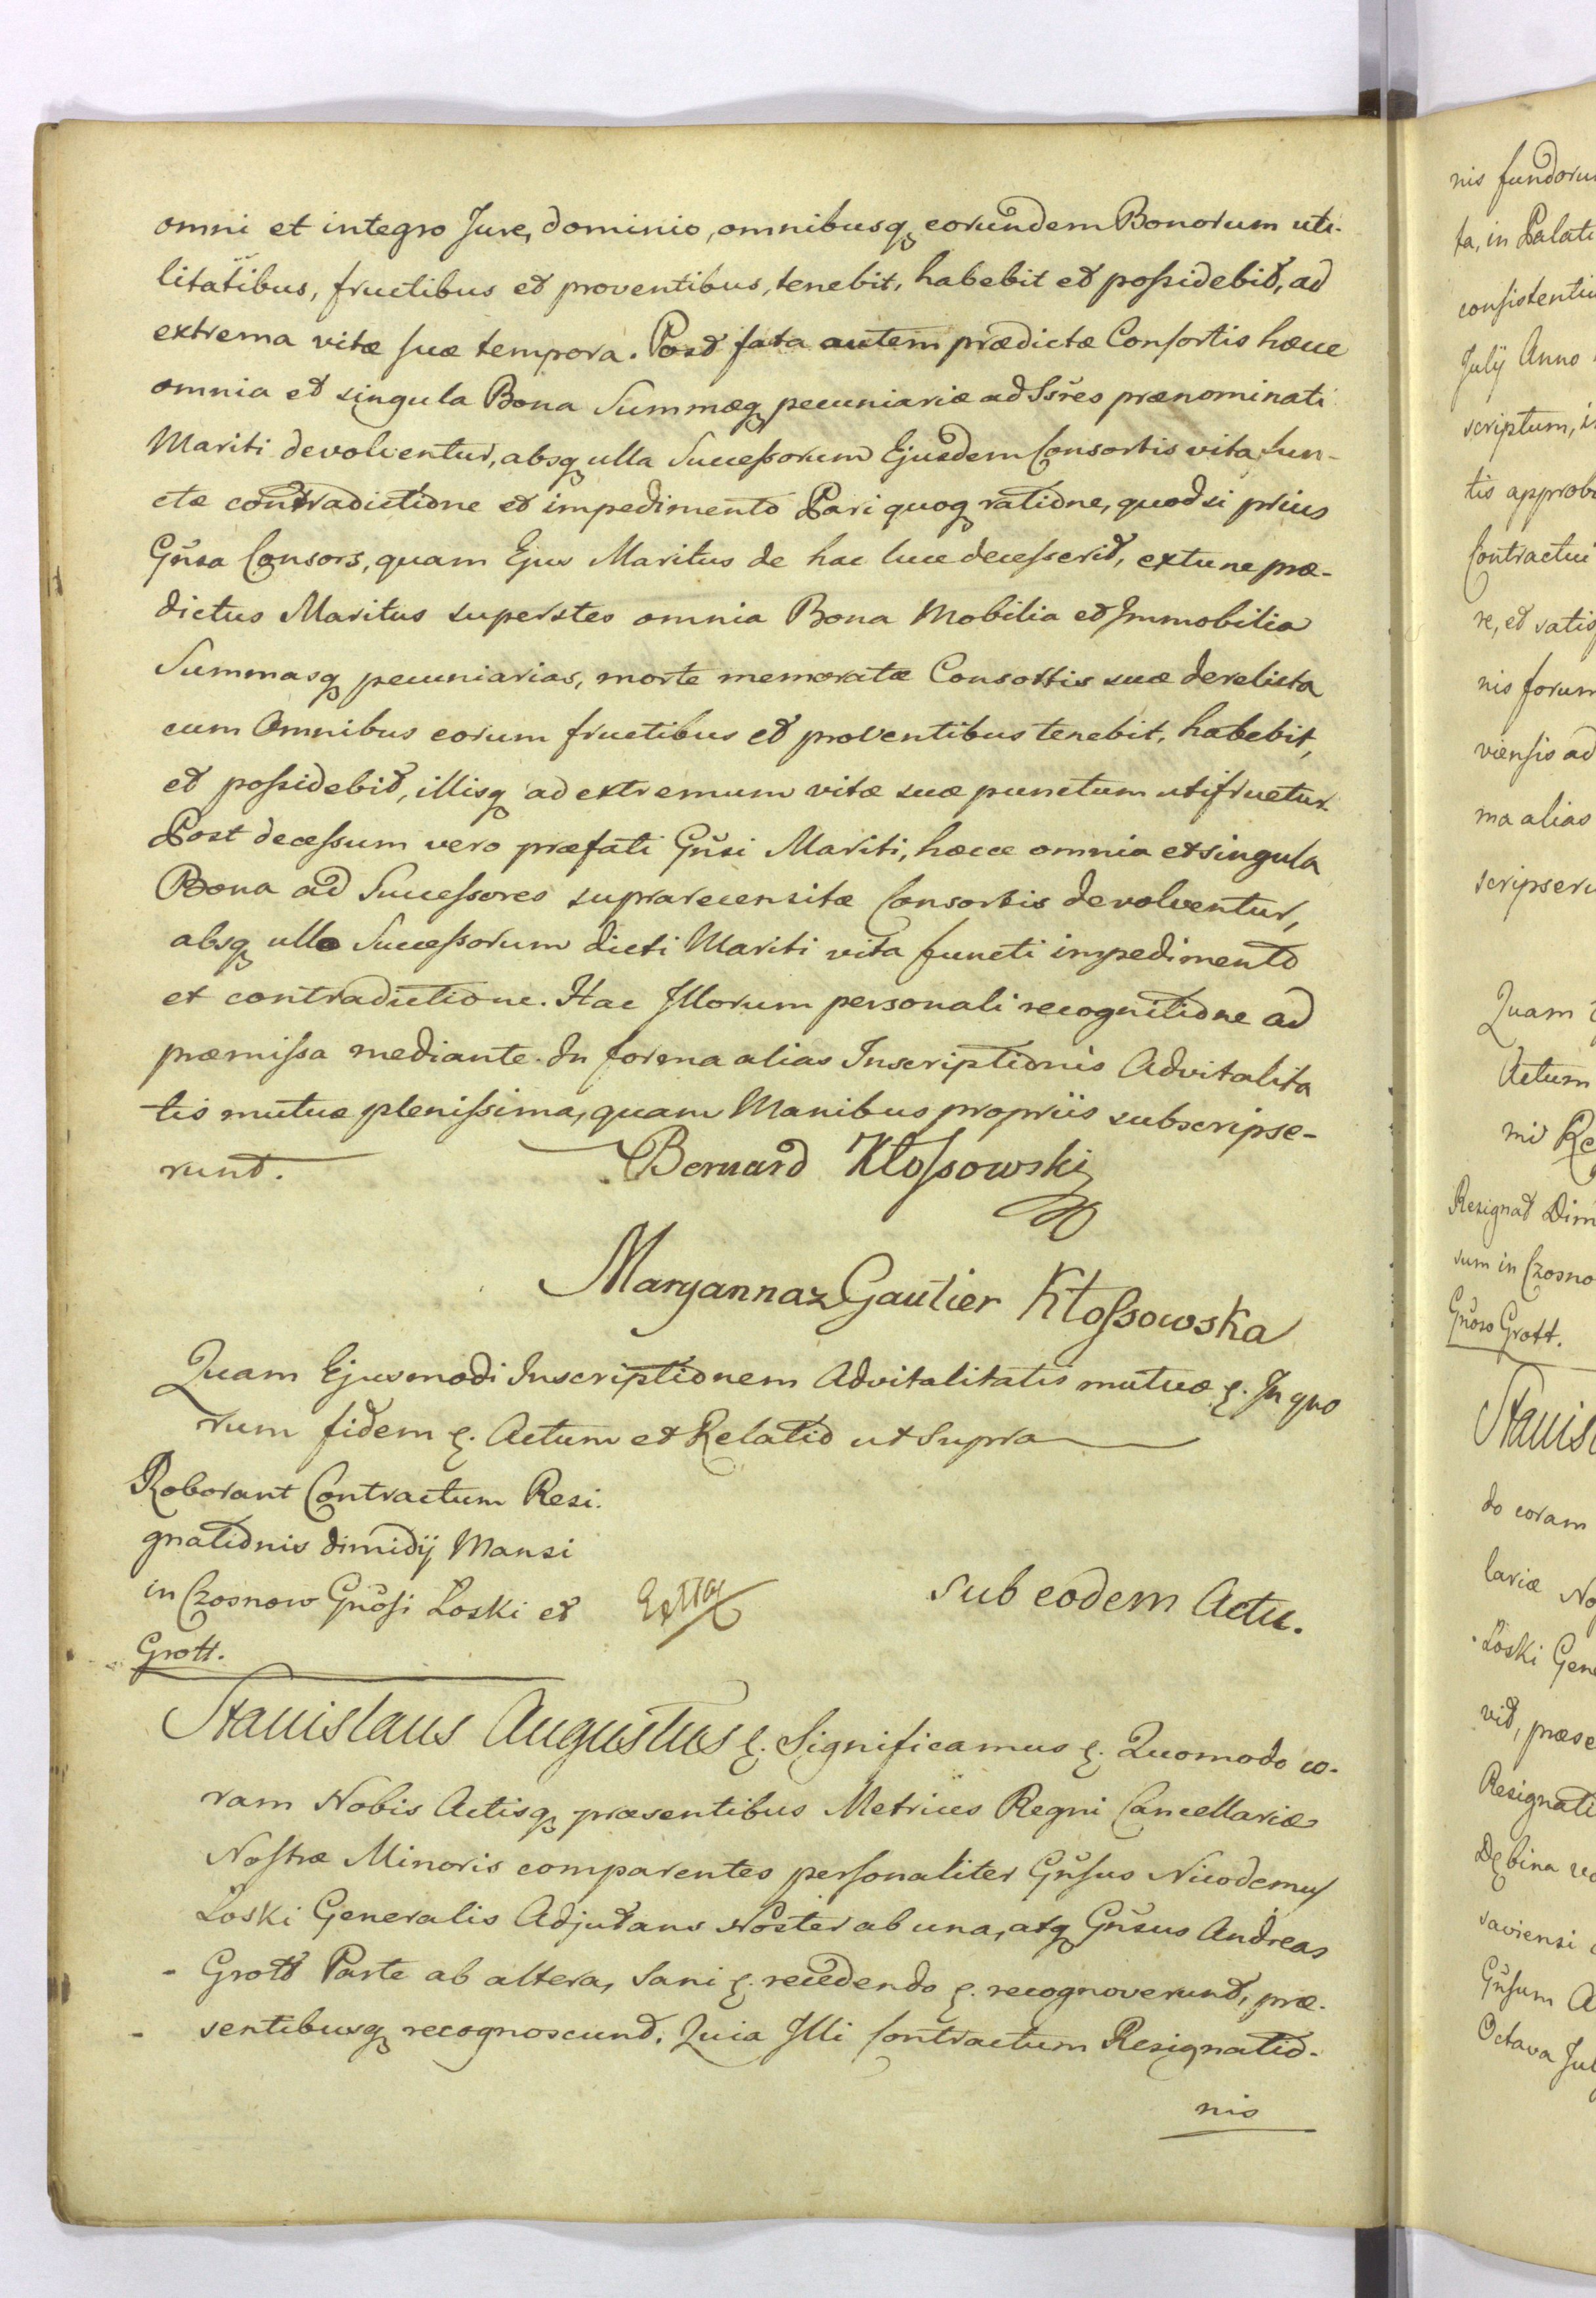 omni et integro Jure, dominio, omnibusq eorundem Bonorum uti-
litatibus, fructibus et proventibus, tenebit, habebit et possidebit, ad
extrema vitæ suæ tempora. Post fata autem prædictæ Consortis hæcce
omnia et singula Bona Summæq pecuniariæ ad Ssres prænominati
Mariti devolventur, absq ulla Successorum Ejusdem Consortis vita fun-
ctæ contradictione et impedimento Pari quoq ratione, quod si prius
Gnsa Consors, quam Ejus Maritus de hac luce decesserit, extunc præ-
dictus Maritus superstes omnia Bona Mobilia et Immobilia
Summasq pecuniarias, morte memoratæ Consortis suæ derelicta
cum Omnibus eorum fructibus et proventibus tenebit, habebit,
et possidebit, illisq ad extremum vitæ suæ punctum utifruetur.
Post decessum vero præfati Gnsi Mariti, hæcce omnia et singula
Bona ad Successores suprarecensitæ Consortis devolventur,
absq ullo Successorum dicti Mariti vita functi impedimento
et contradictione. Hac Illorum personali recognitione ad
præmissa mediante. In forma alias Inscriptionis Advitalita
tis mutuæ plenissima, quam Manibus propriis subscripse-
runt. Bernard Kłossowski
Maryanna z Gautier Kłossowska
Quam Ejusmodi Inscriptionem Advitalitatis mutuæ &. In quo
rum fidem &. Actum et Relatio ut Supra
Roborant Contractum Resi.
gnationis dimidij Mansi
in Czosnow Gnosi Łoski et
Grott.
Sub eodem Actu.
Stanislaus Augustus &. Significamus &. Quomodo co-
ram Nobis Actisq præsentibus Metrices Regni Cancellariæ
Nostræ Minoris comparentes personaliter Gnsus Nicodemus
Łoski Generalis Adjutans Noster ab una, atq Gnsus Andreas
Grott Parte ab altera, Sani &. recedendo &. recognoverunt, præ-
sentibusq recognoscunt. Quia Illi Contractum Resignatio-
nis
nis fundoru
ta, in Palati
consistentiu
Julij Anno
scriptum, i
tis approb
Contractui
re, et satis
nis forum
viensis ad
ma alias
scripseru
Quam
Actum
mi Re
Resignat Dim
sum in Czosno
Gnoso Grott.
Stanis
do coram
lariæ No
Łoski Gene
vit, præse
Resignati
Dębina vo
saviensi
Gnsum A
Octava Jul